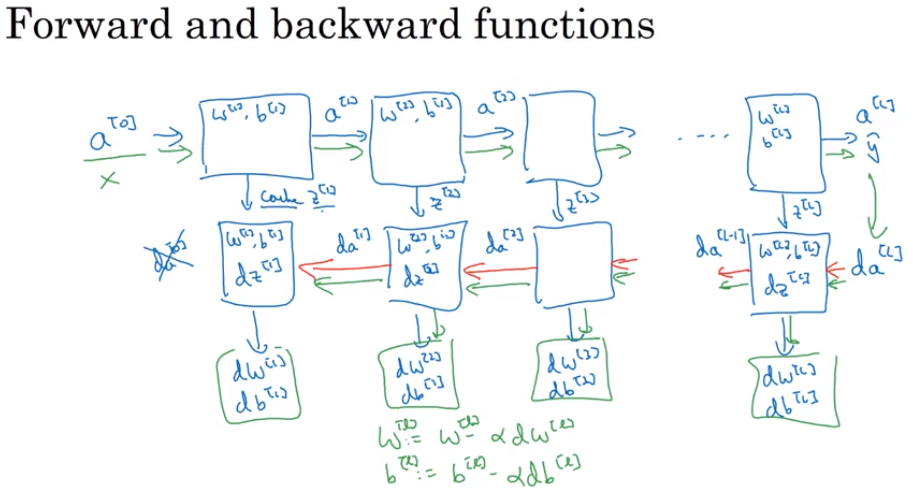 Forward and backward functions
a^[0] w^[1], b^[1] a^[1] w^[2], b^[2] a^[2] .... w^[L] b^[L] a^[L] ŷ
x
cache z^[1] z^[2] z^[3] z^[L]
da^[0] w^[1], b^[1] dz^[1] da^[1] w^[2], b^[2] dz^[2] da^[2] da^[L-1] w^[L], b^[L] dz^[L] da^[L]
dw^[1] dw^[2] dw^[3] dw^[L]
db^[1] db^[2] db^[3] db^[L]
w^[l] := w^[l] - αdw^[l]
b^[l] := b^[l] - αdb^[l]